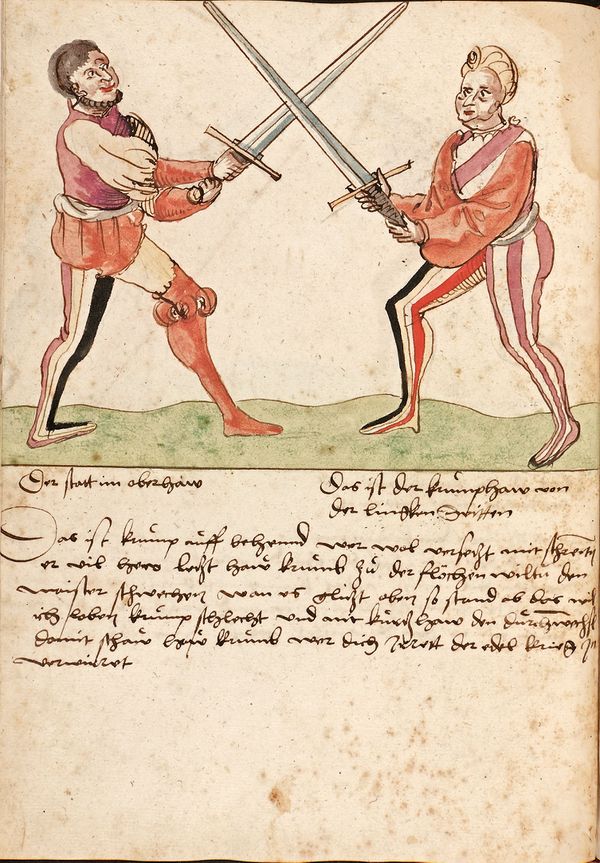 Der statt im oberhaw
Das ist der krumphaw von
der lingkan seitten
Das ist krump auff behennd wer wol versetzt mit schreitten
er vil hew letzt haw krumb zu der flöchen wiltu den
maister schwechen wan es glitzt oben so stand ab das will
ich loben krump schlecht und mit kurtz haw den durchwechsl
domit schaw haw krumb wer dich irrett der edel krieg in
verwirret